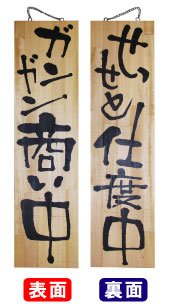 ガンガン商い中
せっせと仕度中
表面
裏面